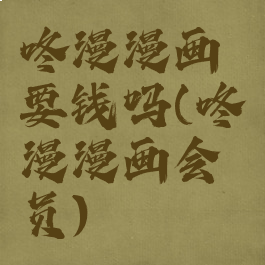 咚漫漫画
要钱吗(咚
漫漫画会
员)